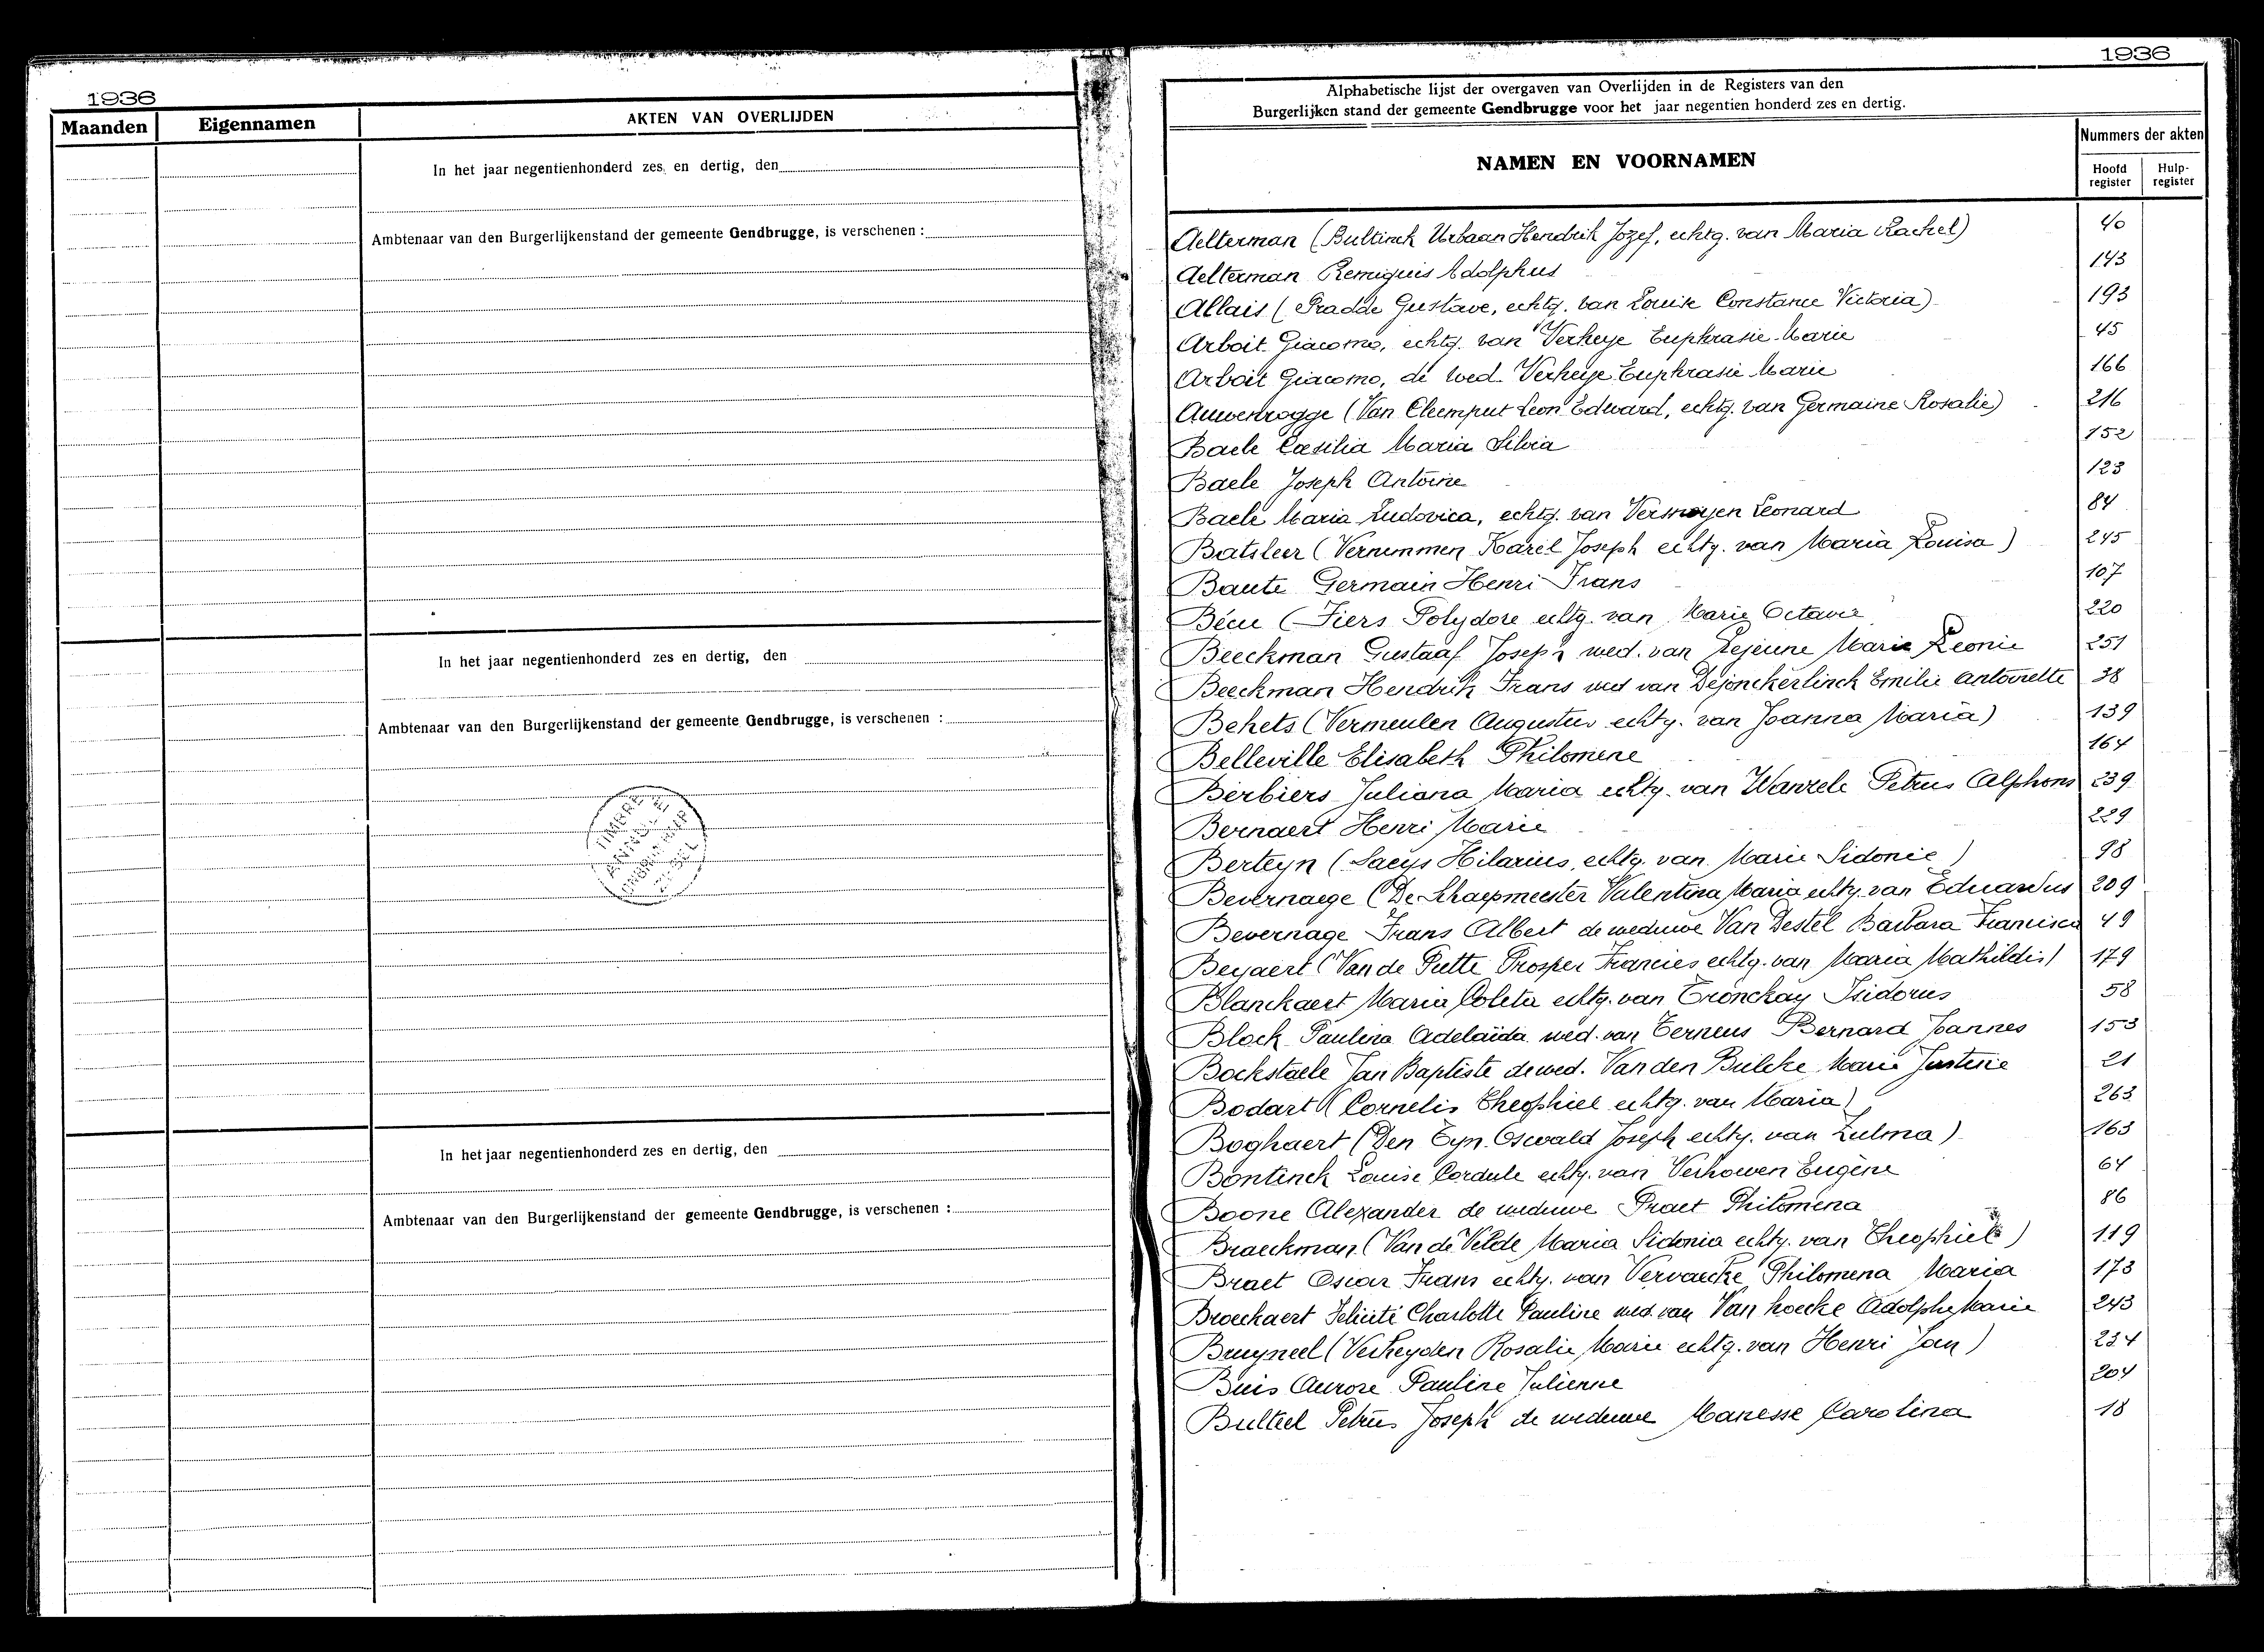 1936
Maanden Eigennamen AKTEN VAN OVERLIJDEN
In het jaar negentienhonderd zes en dertig, den
Ambtenaar van den Burgerlijkenstand der gemeente Gendbrugge, is verschenen :
In het jaar negentienhonderd zes en dertig, den
Ambtenaar van den Burgerlijkenstand der gemeente Gendbrugge, is verschenen :
In het jaar negentienhonderd zes en dertig, den
Ambtenaar van den Burgerlijkenstand der gemeente Gendbrugge, is verschenen :
1936
Alphabetische lijst der overgaven van Overlijden in de Registers van den
Burgerlijken stand der gemeente Gendbrugge voor het jaar negentien honderd zes en dertig.
NAMEN EN VOORNAMEN
Nummers der akten
Hoofd register Hulp-register
Aelterman (Bultinck Urbaan Hendrik Jozef, echtg. van Maria Rachel) 40
Aelterman Remiguis Adolphus 143
Allais (Pradde Gustave, echtg. van Louise Constance Victoria) 193
Arboit Giacomo, echtg. van Verheye Euphrasie Marie 45
Arboit Giacomo, de wed. Verheye Euphrasie Marie 166
Auwenrogge (Van Cleemput Leon Edward, echtg. van Germaine Rosalie) 216
Baele Cæsilia Maria Silvia 152
Baele Joseph Antoine 123
Baele Maria Ludovica, echtg. van Vermoyen Leonard 84
Batsleer (Vernimmen Karel Joseph echtg. van Maria Louisa) 245
Baute Germain Henri Frans 107
Bécu (Fiers Polydore echtg. van Marie Octavie 220
Beeckman Gustaaf Joseph wed. van Lejeune Marie Leonie 251
Beeckman Hendrik Frans wed van Dejonckerlinck Emilie Antoinette 38
Behets (Vermeulen Augustus echtg. van Joanna Maria) 139
Belleville Elisabeth Philomene 164
Berbiers Juliana Maria echtg. van Wanzele Petrus Alphons 239
Bernaert Henri Marie 229
Berteyn (Saeys Hilarius, echtg. van Marie Sidonie) 98
Bevernaege (De Schaepmeester Valentina Maria echtg. van Eduardus 209
Bevernage Frans Albert de weduwe Van Destel Barbara Francisca 49
Beyaert (Van de Putte Prosper Francies echtg. van Maria Mathildis) 179
Blanckaert Maria Coleta echtg. van Tronckay Isidorus 58
Block Paulina Adelaïda wed. van Terneus Bernard Joannes 153
Bockstaele Jan Baptiste de wed. Van den Bulcke Marie Justine 21
Bodart (Cornelis Theophiel echtg. van Maria) 263
Boghaert (Den Tyn Oswald Joseph echtg. van Zulma) 163
Bontinck Louise Cordule echtg. van Verhowen Eugène 64
Boone Alexander de weduwe Praet Philomena 86
Braeckman (Van de Velde Maria Sidonia echtg. van Theophiel) 119
Braet Oscar Frans echtg. van Vervaecke Philomena Maria 173
Broeckaert Felicité Charlotte Pauline wed. van Van hoecke Adolphe Marie 243
Bruyneel (Verheyden Rosalie Marie echtg. van Henri Jan) 234
Buis Aurore Pauline Julienne 204
Bulteel Petrus Joseph de weduwe Manesse Carolina 18